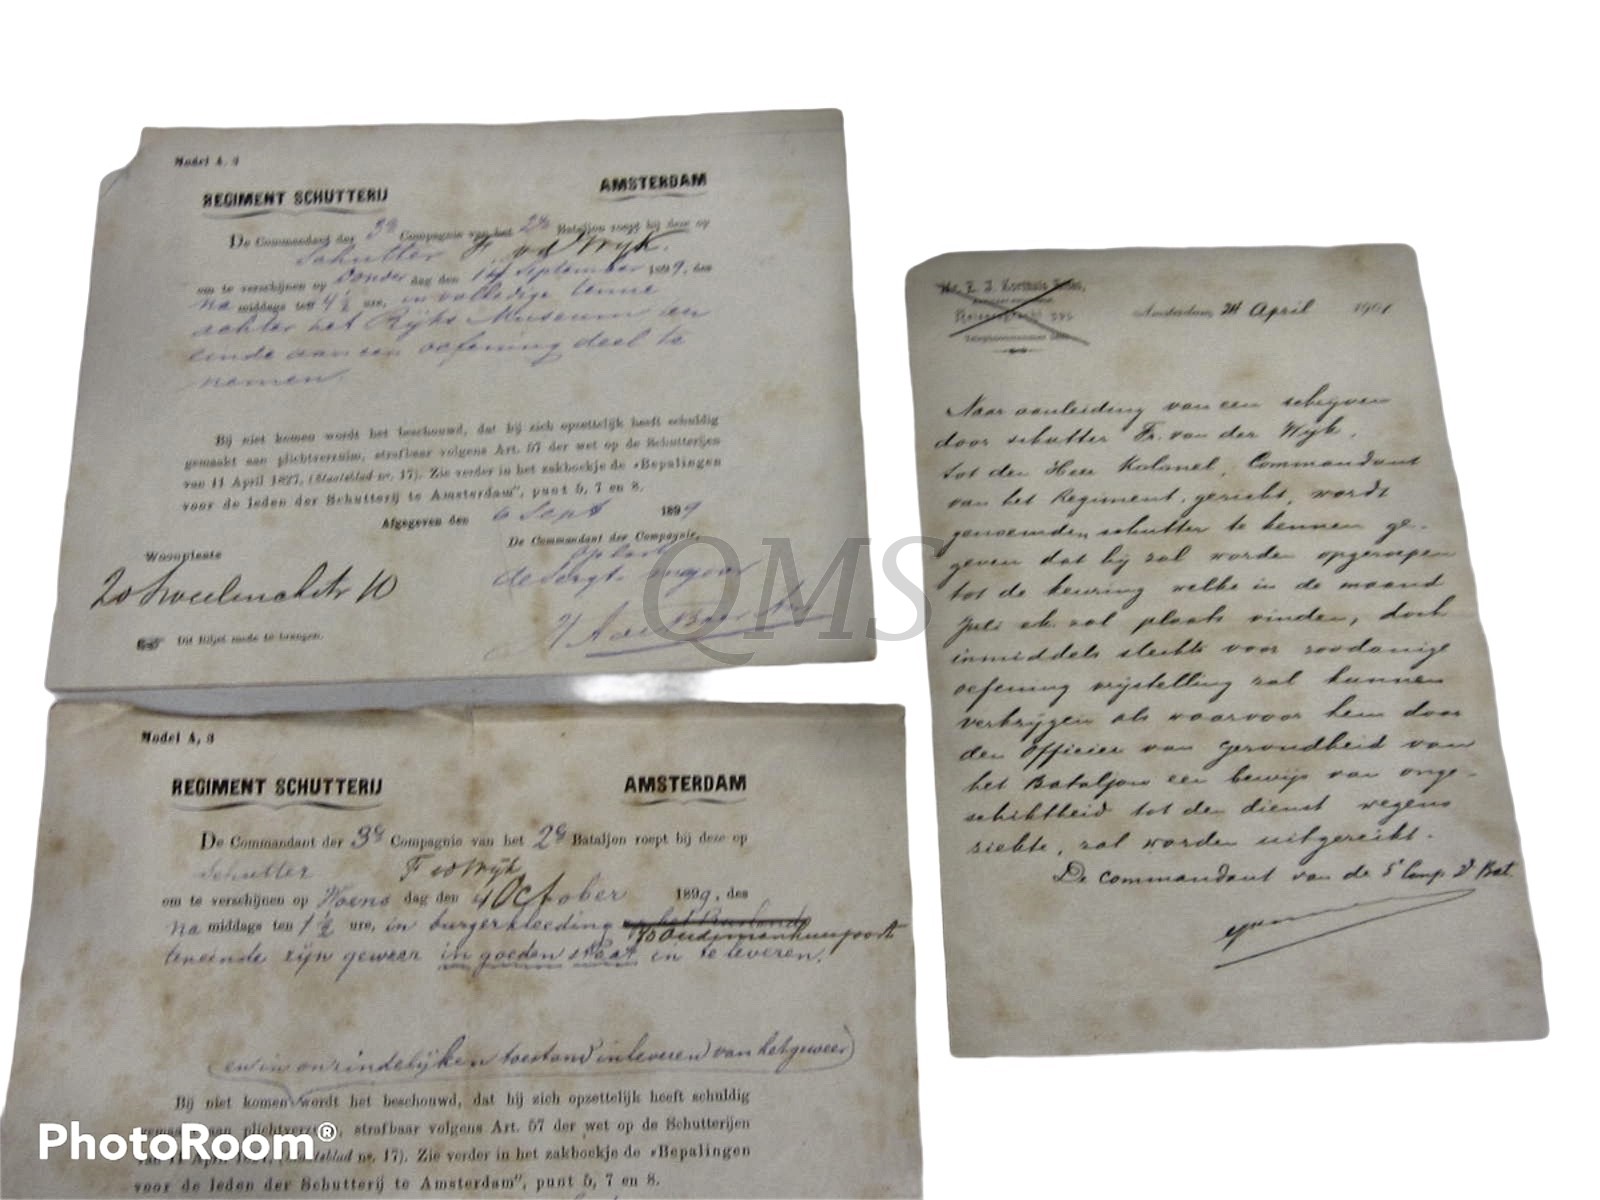 Model A, 3
REGIMENT SCHUTTERIJ AMSTERDAM
De Commandant der 3e Compagnie van het 2e Bataljon roept bij deze op
Schutter F. v d Wyk.
om te verschijnen op Donder dag den 14 September 1899, des
na middags ten 4½ ure, in volledige tenue
achter het Rijks Museum ten
einde aan een oefening deel te
nemen.
Bij niet komen wordt het beschouwd, dat hij zich opzettelijk heeft schuldig
gemaakt aan plichtverzuim, strafbaar volgens Art. 57 der wet op de Schutterijen
van 11 April 1827, (Staatsblad nr. 17). Zie verder in het zakboekje de »Bepalingen
voor de leden der Schutterij te Amsterdam", punt 5, 7 en 8.
Afgegeven den 6 Sept 1899
De Commandant der Compagnie,
Op last
de Sergt. majoor
Woonplaats
2e Sweelinckstr 10
Dit Biljet mede te brengen.
Model A, 3
REGIMENT SCHUTTERIJ AMSTERDAM
De Commandant der 3e Compagnie van het 2e Bataljon roept bij deze op
Schutter F v d Wyk
om te verschijnen op Woens dag den 4 October 1899, des
na middags ten 1½ ure, in burgerkleeding
Oudemanhuispoort
teneinde zijn geweer in goeden staat in te leveren.
en in onzindelijken toestand inleveren van het geweer)
Bij niet komen wordt het beschouwd, dat hij zich opzettelijk heeft schuldig
aan strafbaar volgens Art. 57 der wet op de Schutterijen
van 11 April 1827, (Staatsblad nr. 17). Zie verder in het zakboekje de »Bepalingen
voor de leden der Schutterij te Amsterdam", punt 5, 7 en 8.
Amsterdam, 24 April 1901
Naar aanleiding van een schrijven
door schutter Fr. van der Wyk,
tot den Heer Kolonel, Commandant
van het Regiment, gericht, wordt
genoemden schutter te kennen ge-
geven dat hij zal worden opgeroepen
tot de keuring welke in de maand
Juli ek. zal plaats vinden, doch
inmiddels slechts voor zoodanige
oefening vrijstelling zal kunnen
verkrijgen als waarvoor hem door
den Officier van gezondheid van
het Bataljon een bewijs van onge-
schiktheid tot den dienst wegens
ziekte, zal worden uitgereikt.
De commandant van de 3e Comp 2e Bat.
QMS
PhotoRoom®